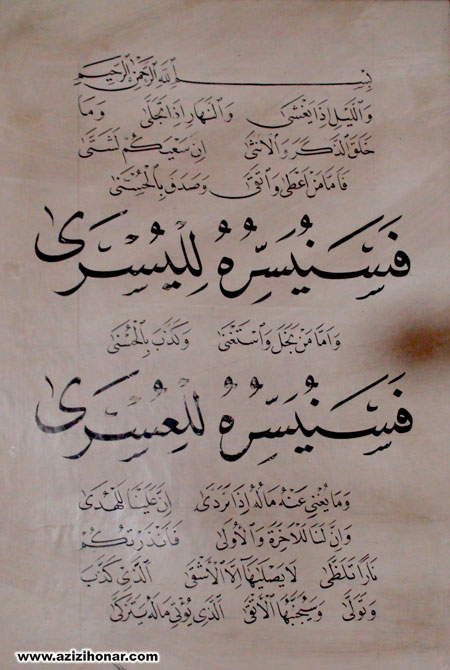 بِسْمِ اللَّهِ الرَّحْمٰنِ الرَّحِيمِ
وَاللَّيْلِ إِذَا يَغْشَىٰ وَالنَّهَارِ إِذَا تَجَلَّىٰ وَمَا
خَلَقَ الذَّكَرَ وَالْأُنْثَىٰ إِنَّ سَعْيَكُمْ لَشَتَّىٰ
فَأَمَّا مَنْ أَعْطَىٰ وَاتَّقَىٰ وَصَدَّقَ بِالْحُسْنَىٰ
فَسَنُيَسِّرُهُ لِلْيُسْرَىٰ
وَأَمَّا مَنْ بَخِلَ وَاسْتَغْنَىٰ وَكَذَّبَ بِالْحُسْنَىٰ
فَسَنُيَسِّرُهُ لِلْعُسْرَىٰ
وَمَا يُغْنِي عَنْهُ مَالُهُ إِذَا تَرَدَّىٰ إِنَّ عَلَيْنَا لَلْهُدَىٰ
وَإِنَّ لَنَا لَلْآخِرَةَ وَالْأُولَىٰ فَأَنْذَرْتُكُمْ
نَارًا تَلَظَّىٰ لَا يَصْلَاهَا إِلَّا الْأَشْقَىٰ الَّذِي كَذَّبَ
وَتَوَلَّىٰ وَسَيُجَنَّبُهَا الْأَتْقَىٰ الَّذِي يُؤْتِي مَالَهُ يَتَزَكَّىٰ
www.azizihonar.com